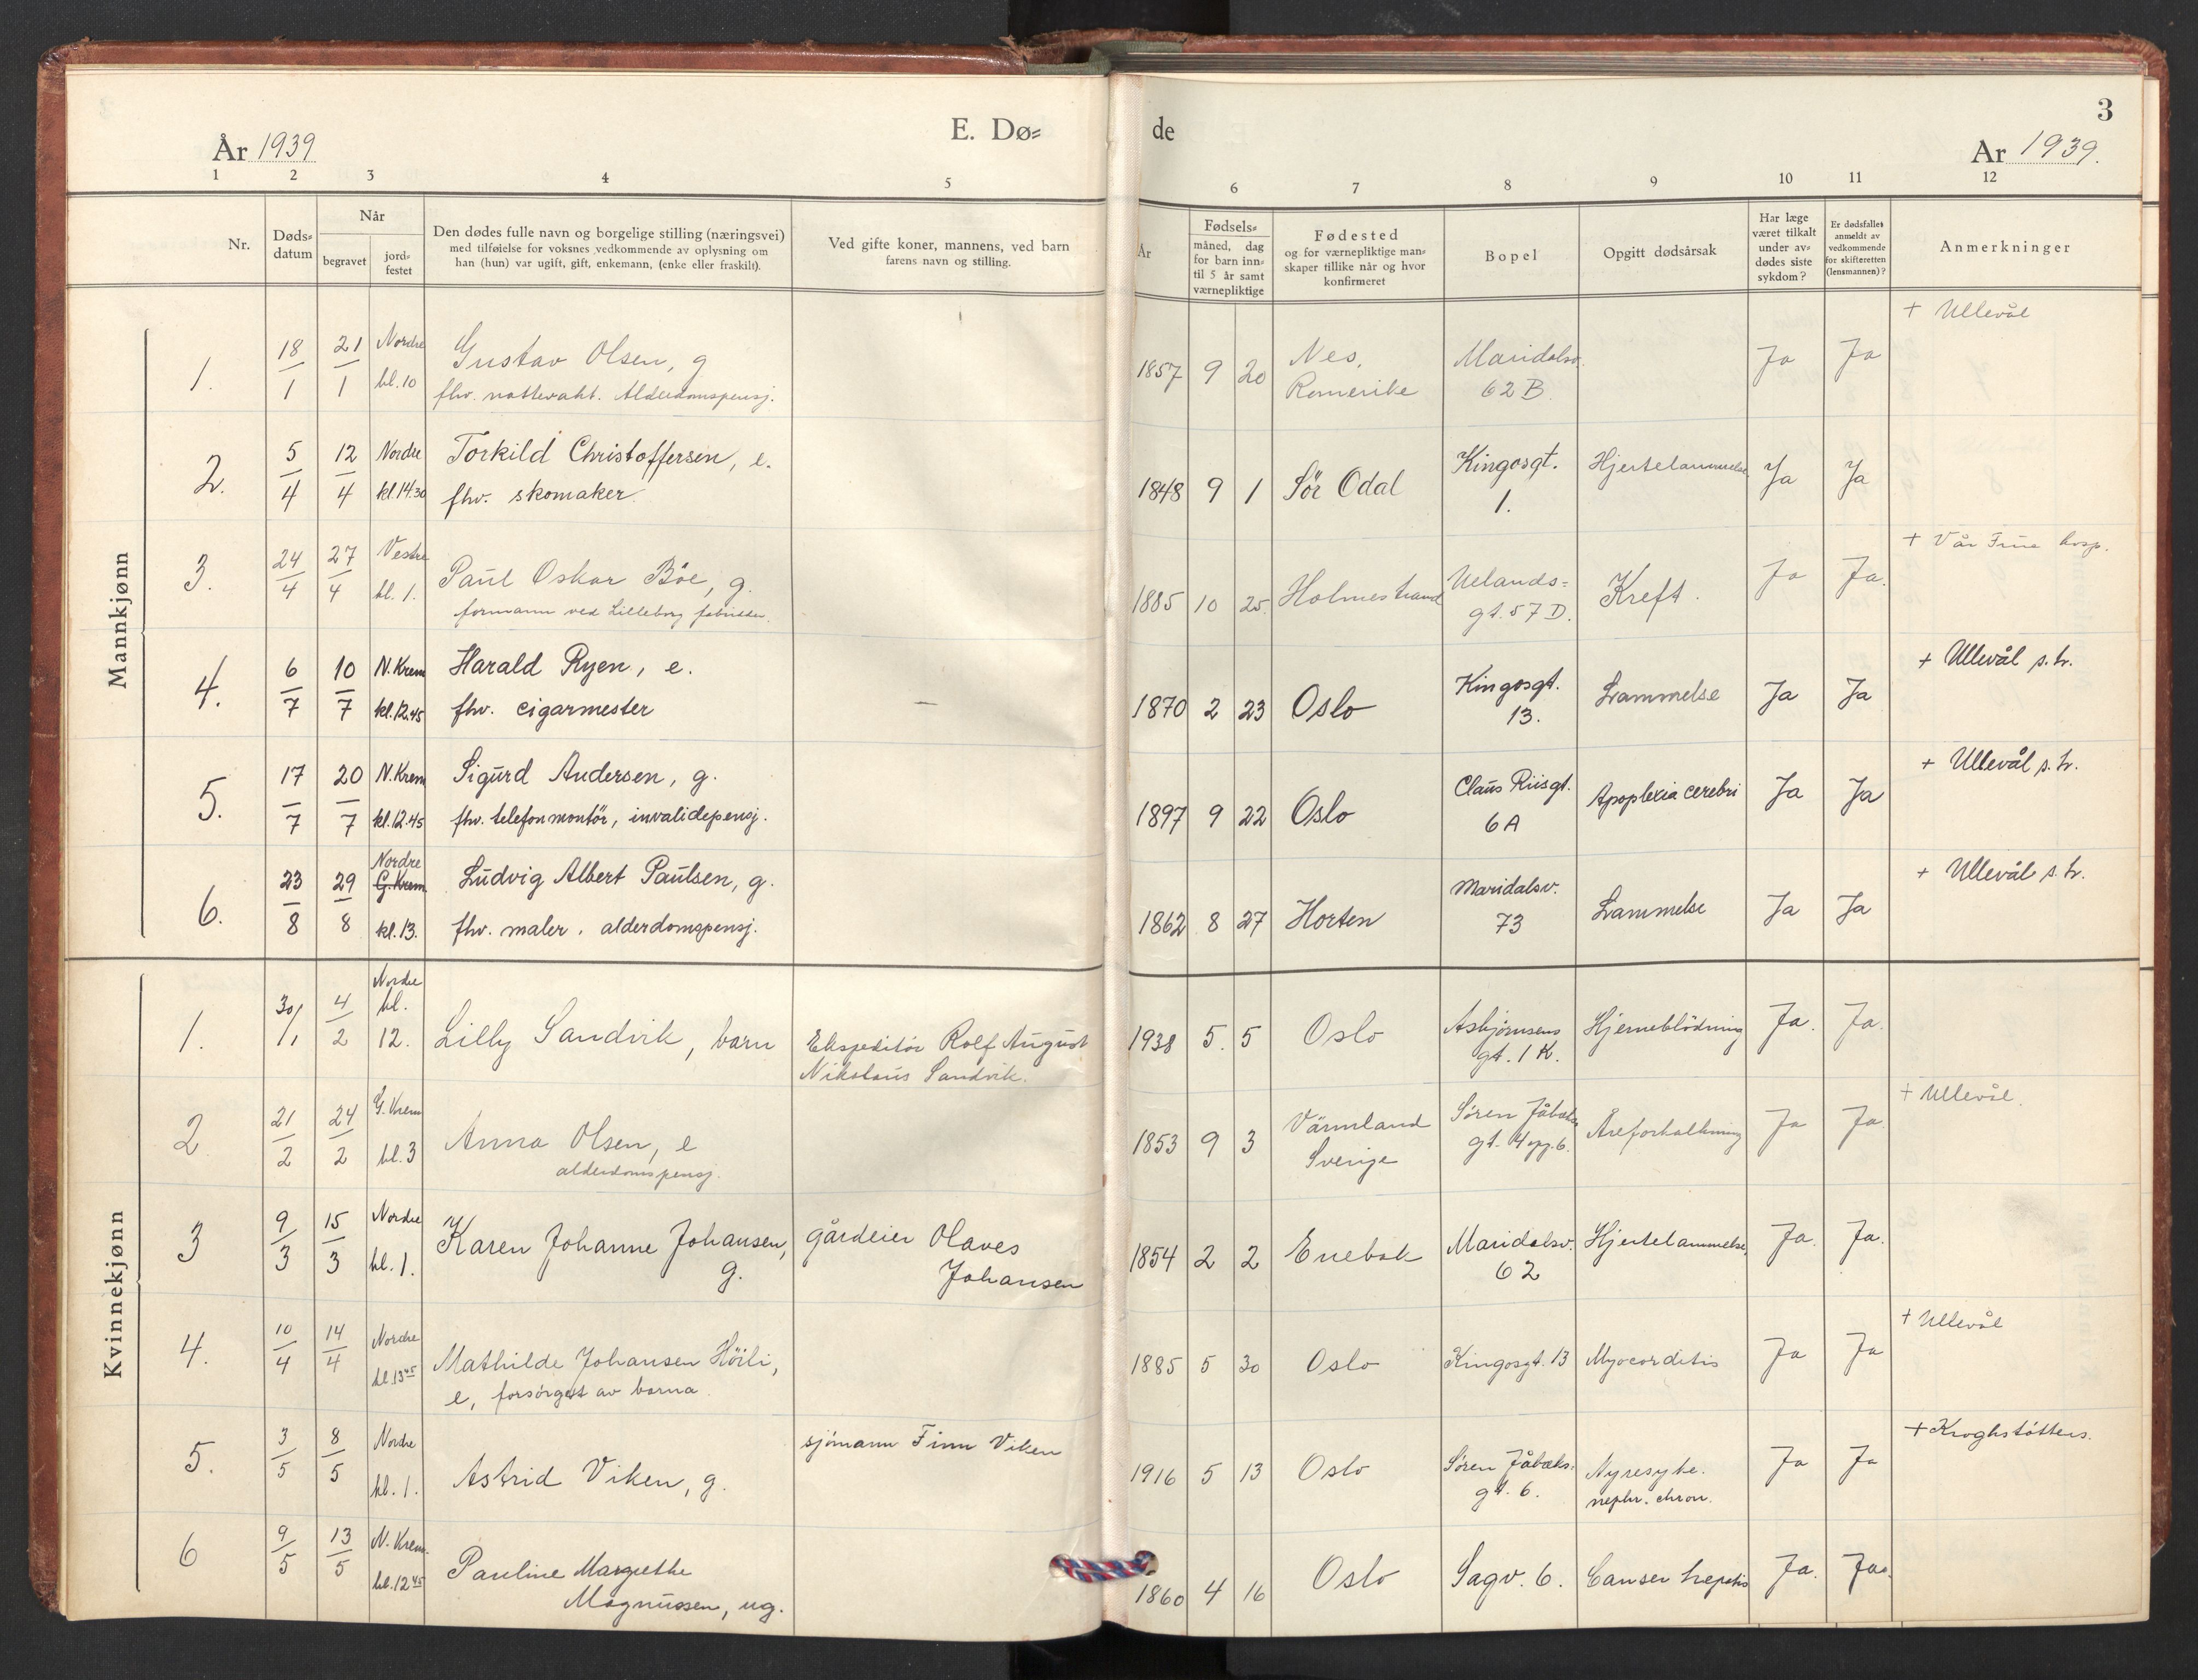 E. Dø= de
3
År 1939
Ar 1939.
1 2 3 4 5 6 7 8 9 10 11 12
Nr.
Døds=
datum
Når
begravet
jord=
festet
Den dødes fulle navn og borgelige stilling (næringsvei)
med tilføielse for voksnes vedkommende av oplysning om
han (hun) var ugift, gift, enkemann, (enke eller fraskilt).
Ved gifte koner, mannens, ved barn
farens navn og stilling.
År
Fødsels=
måned, dag
for barn inn=
til 5 år samt
værnepliktige
Fødested
og for værnepliktige man=
skaper tillike når og hvor
konfirmeret
Bopel
Opgitt dødsårsak
Har læge
været tilkalt
under av=
dødes siste
sykdom?
Er dødsfallet
anmeldt av
vedkommende
for skifteretten
(lensmannen)?
Anmerkninger
Mannkjønn
1. 18/1 21/1 Nordre kl. 10
Gustav Olsen, g
fhv. nattevakt. Alderdomspensj.
1857 9 20 Nes, Romerike
Maridalsv. 62 B.
Ja Ja
+ Ullevål
2. 5/4 12/4 Nordre kl. 14.30
Torkild Christoffersen, e.
fhv. skomaker
1848 9 1 Sör Odal
Kingosgt. 1.
Hjertelammelse
Ja Ja
3. 24/4 27/4 Vestre kl. 1.
Paul Oskar Böe, g.
formann ved Lilleborg fabrikker.
1885 10 25. Holmestrand
Uelands=
gt. 57 D.
Kreft.
Ja Ja.
+ Vår Frue hosp.
4. 6/7 10/7 N. Krem kl. 12.45
Harald Ryen, e.
fhv. cigarmester
—
1870 2 23 Oslo
Kingosgt. 13.
Lammelse
Ja Ja
+ Ullevål s.h.
5. 17/7 20/7 N. Krem kl. 12.45
Sigurd Andersen, g.
fhv. telefonmontör, invalidepensj.
1897 9 22 Oslo
Claus Riisgt. 6 A
Apoplexia cerebri
Ja Ja
+ Ullevål s.h.
6. 23/8 29/8 Nordre G. Krem kl. 13.
Ludvig Albert Paulsen, g.
fhv. maler. alderdomspensj.
1862 8 27 Horten
Maridalsv. 73
Lammelse
Ja Ja
+ Ullevål s.h.
Kvinnekjønn
1. 30/1 4/2 Nordre kl. 12.
Lilly Sandvik, barn
Ekspeditör Rolf August
Nikolaus Sandvik.
1938 5. 5 Oslo
Asbjørnsens
gt. 1 K.
Hjerneblödning
Ja. Ja.
2 21/2 24/2 G. Krem kl. 3
Anna Olsen, e
alderdomspensj.
1853 9 3 Värmland
Sverige
Søren Jåbæks
gt. 4 opg. 6.
Åreforkalkning
Ja Ja.
+ Ullevål.
3 9/3 15/3 Nordre kl. 1.
Karen Johanne Johansen,
g.
gårdeier Olaves
Johansen
1854 2 2 Enebak
Maridalsv.
62
Hjertelammelse,
Ja. Ja.
4. 10/4 14/4 Nordre kl. 13 45
Mathilde Johansen Höili,
e, forsörget av barna.
1885 5 30 Oslo
Kingosgt. 13
Myocarditis
Ja Ja
+ Ullevål
5. 3/5 8/5 Nordre kl. 1.
Astrid Viken, g.
sjömann Finn Viken
1916 5 13 Oslo
Søren Jåbæks.
gt. 6.
Nyresyke.
nephr. chron.
Ja Ja
+ Kroghstöttens.
6 9/5 13/5 N. Krem. kl. 12 45
Pauline Margrethe
Magnussen, ug.
1860 4 16 Oslo
Sagv. 6.
Canser hepatis
Ja. Ja.